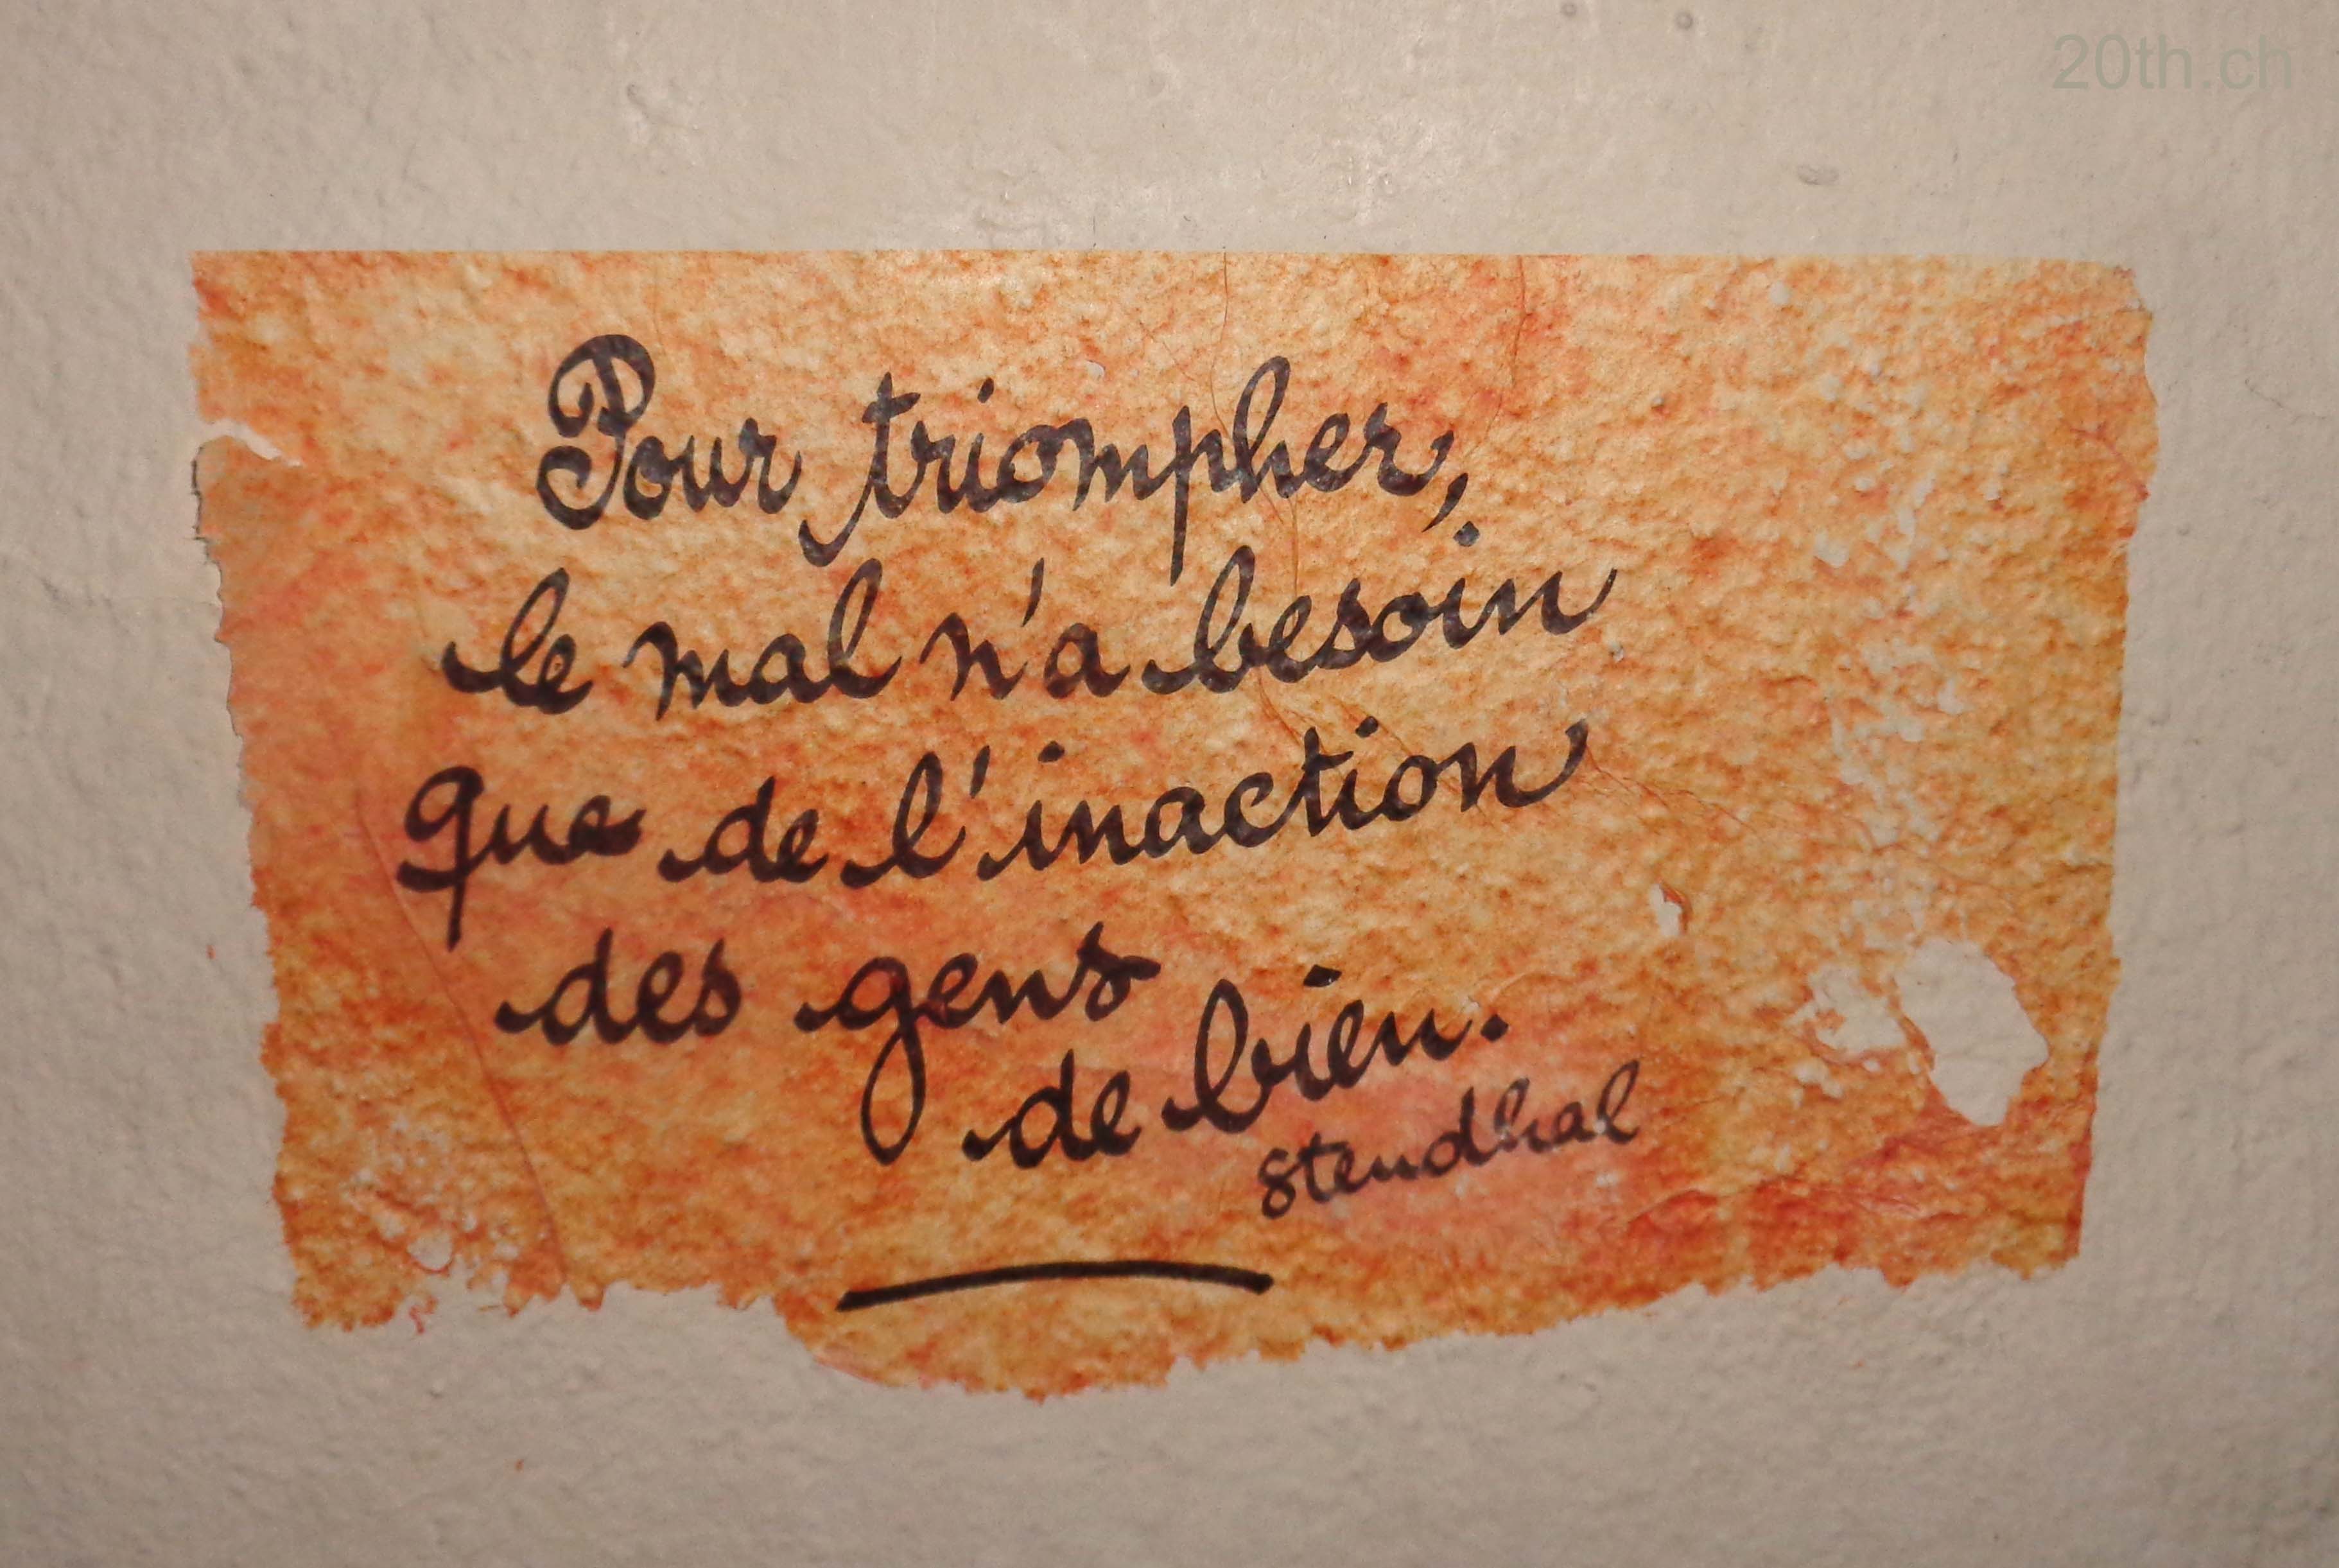 20th.ch
Pour triompher,
le mal n'a besoin
que de l'inaction
des gens
de bien.
Stendhal